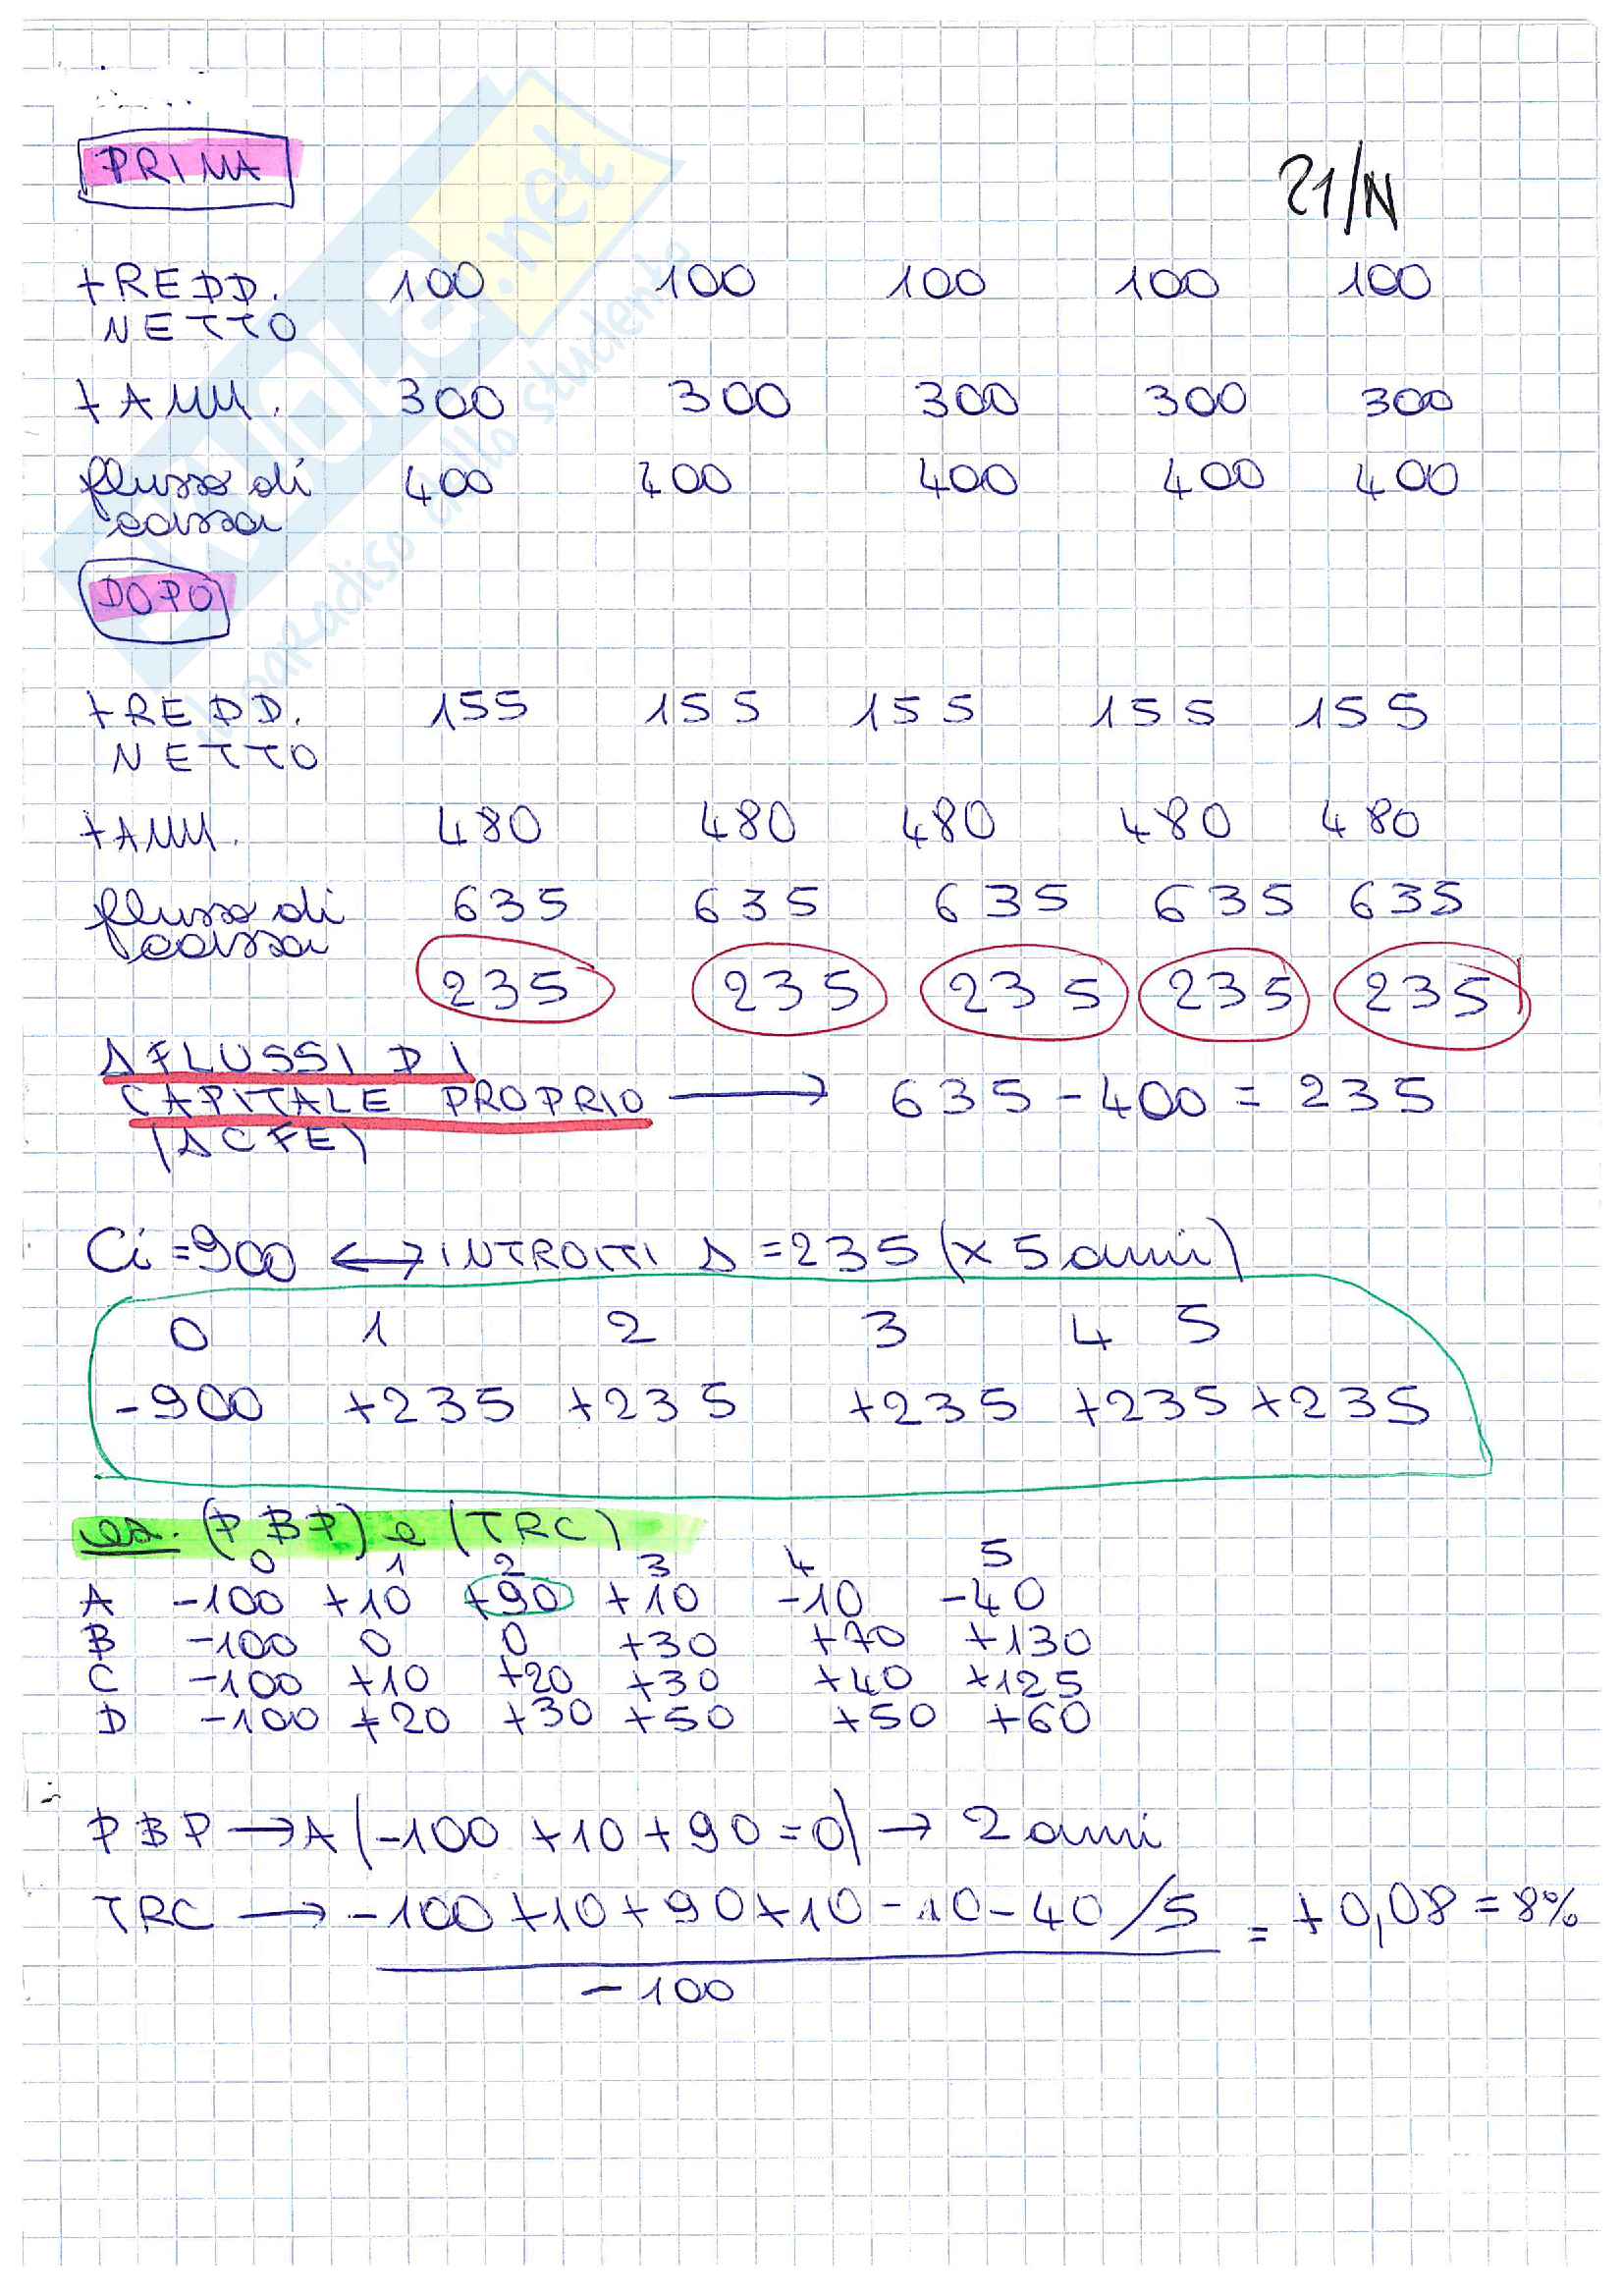 PRIMA
21/N
+REDD. 100 100 100 100 100
NETTO
+AMM. 300 300 300 300 300
flusso di 400 400 400 400 400
cassa
DOPO
+REDD. 155 155 155 155 155
NETTO
+AMM. 480 480 480 480 480
flusso di 635 635 635 635 635
cassa
235 235 235 235 235
Δ FLUSSI DI
CAPITALE PROPRIO → 635 - 400 = 235
(ΔCFE)
Ci = 900 ↔ INTROITI Δ = 235 (x 5 anni)
0 1 2 3 4 5
-900 +235 +235 +235 +235 +235
es. (PBP) e (TRC)
0 1 2 3 4 5
A -100 +10 +90 +10 -10 -40
B -100 0 0 +30 +70 +130
C -100 +10 +20 +30 +40 +125
D -100 +20 +30 +50 +50 +60
PBP → A (-100 +10 +90 = 0) → 2 anni
TRC → -100 +10 +90 +10 -10 -40 /5 = +0,08 = 8%
-100
SKUOLA.net
il paradiso dello studente